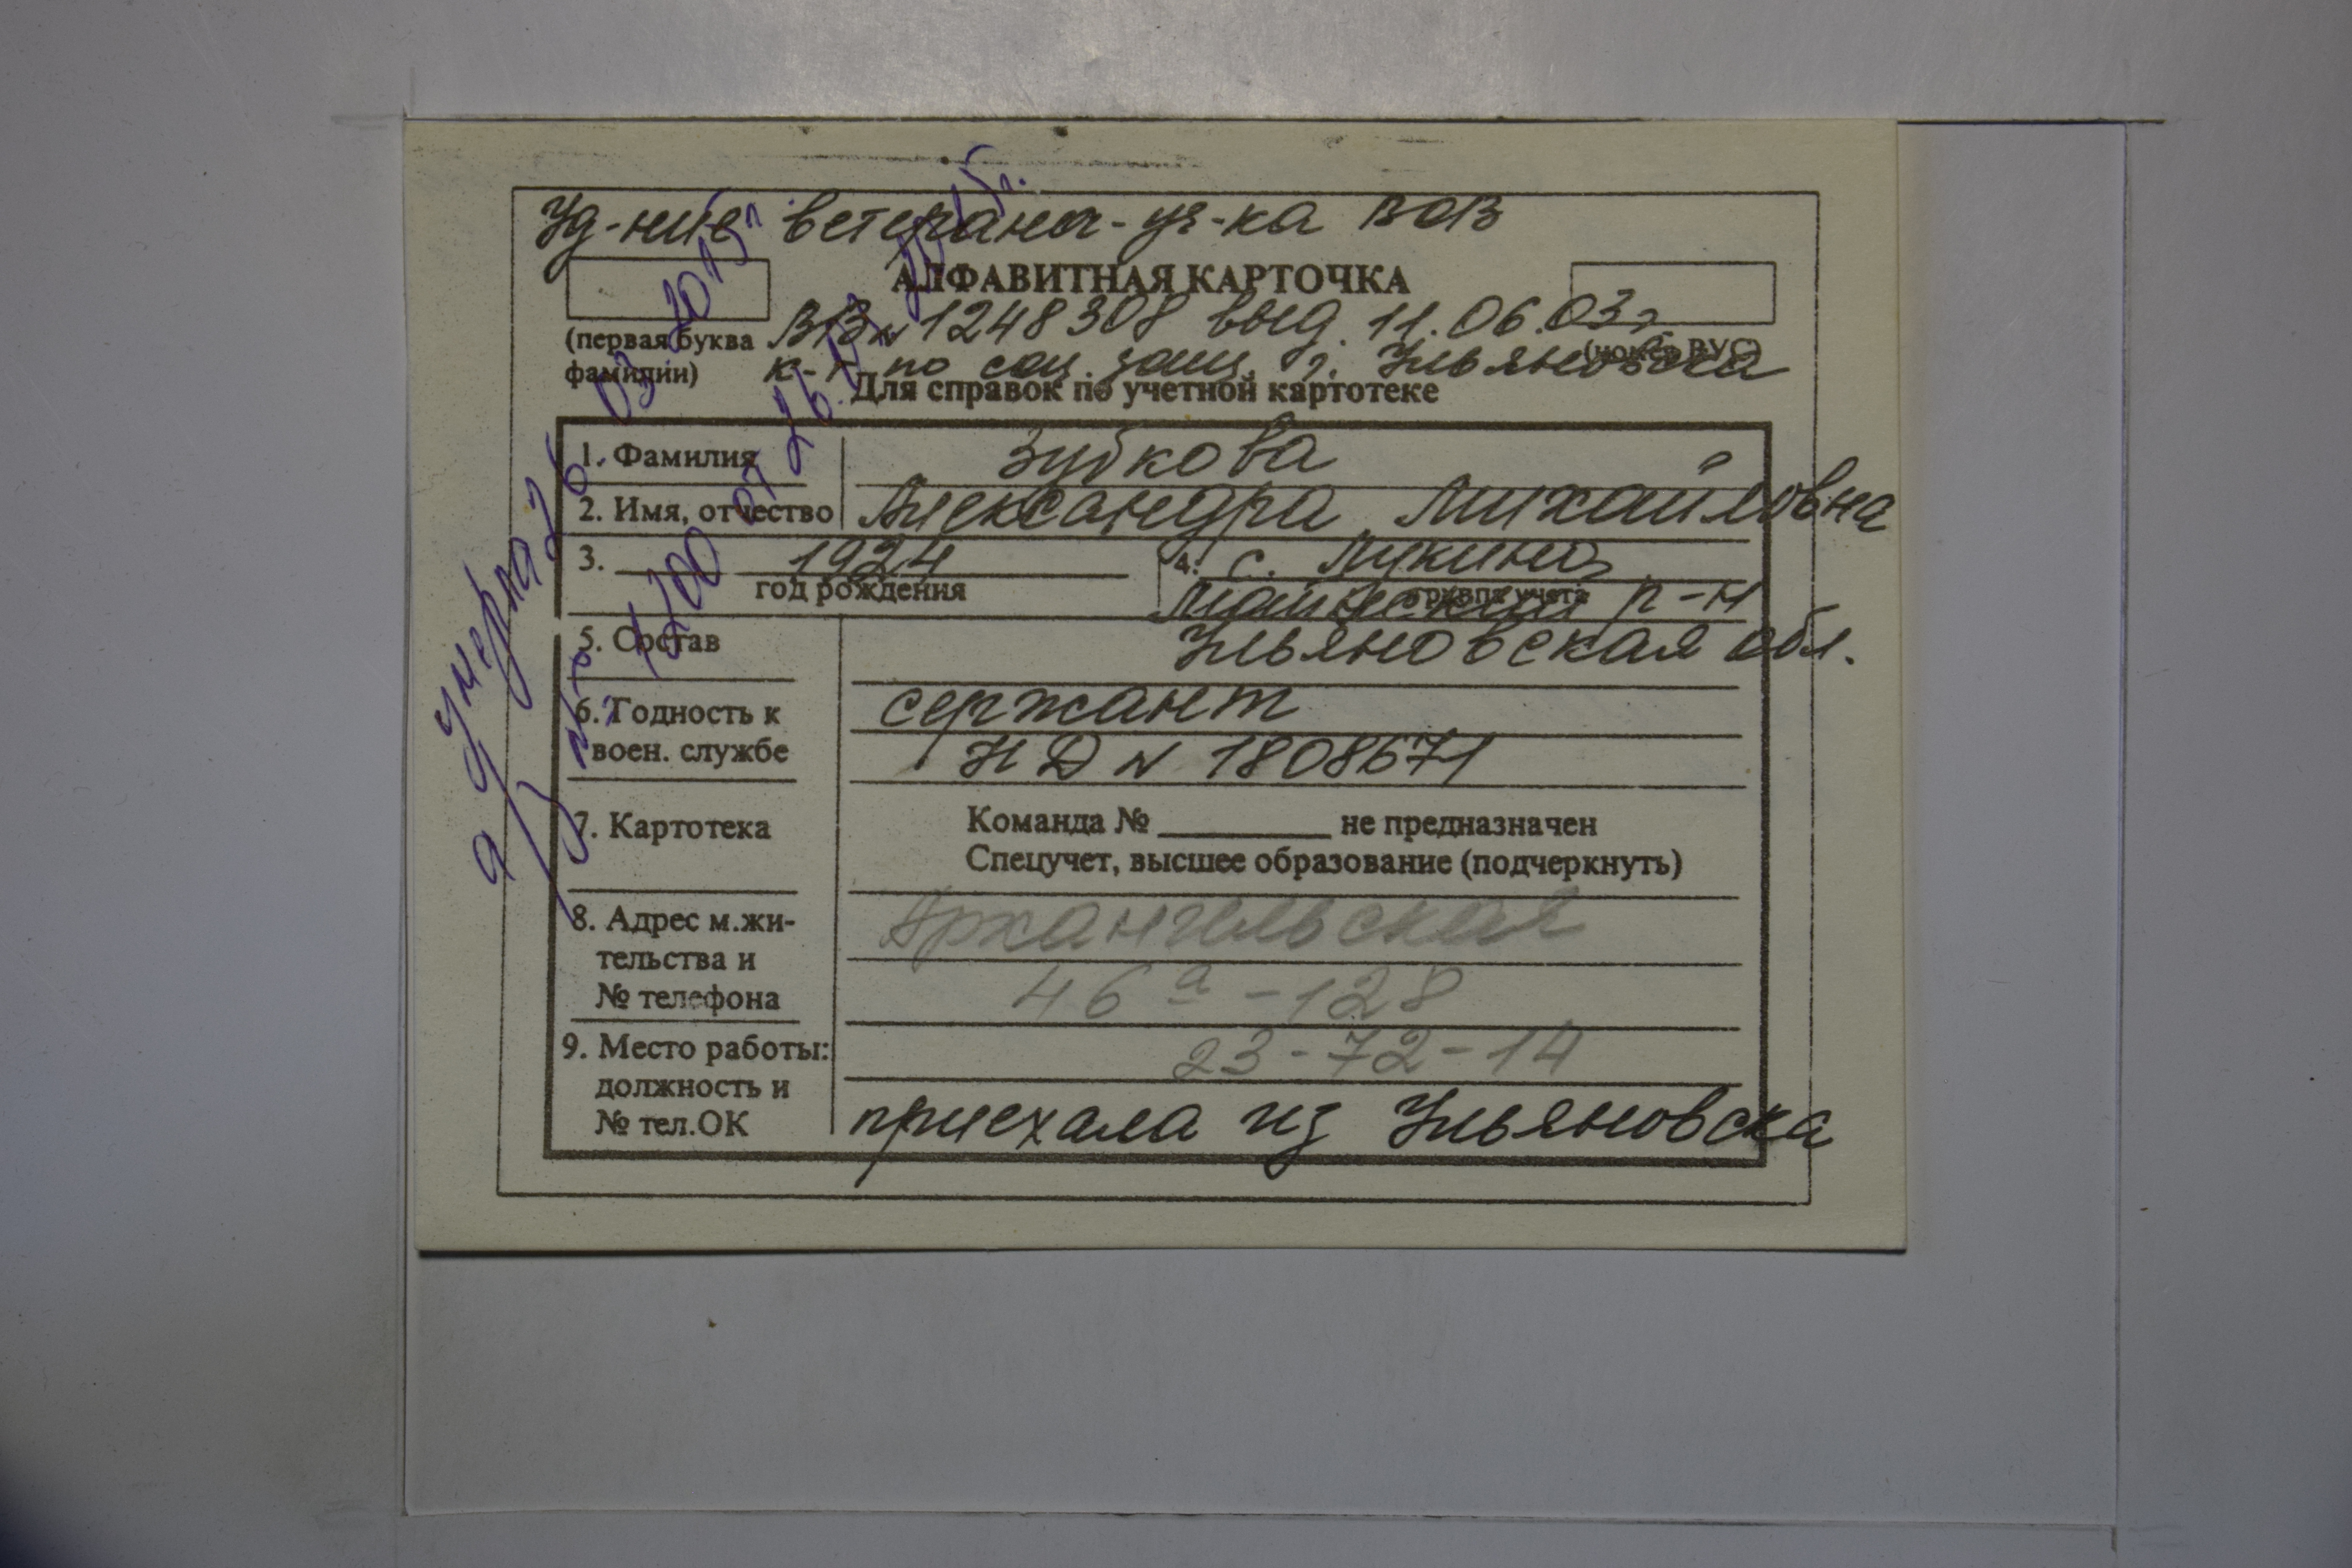 Уд-ние ветерана-уч-ка ВОВ
АЛФАВИТНАЯ КАРТОЧКА
(первая буква
фамилии)
ВВ № 1248308 выд. 11.06.03г
(номер ВУС)
к-т по соц. защ. г. Ульяновска
Для справок по учетной картотеке
1. Фамилия Зубкова
2. Имя, отчество Александра Михайловна
3. 1924
год рождения
4. с. Лукино,
группа учета
Майнский р-н
Ульяновская обл.
5. Состав
6. Годность к
воен. службе
сержант
НД № 1808671
7. Картотека
Команда № не предназначен
Спецучет, высшее образование (подчеркнуть)
8. Адрес м.жи-
тельства и
№ телефона
Архангельская
46а - 128
23-72-14
9. Место работы:
должность и
№ тел.ОК
приехала из Ульяновска
умерла 26 03 2015г.
а/з № 1200 от